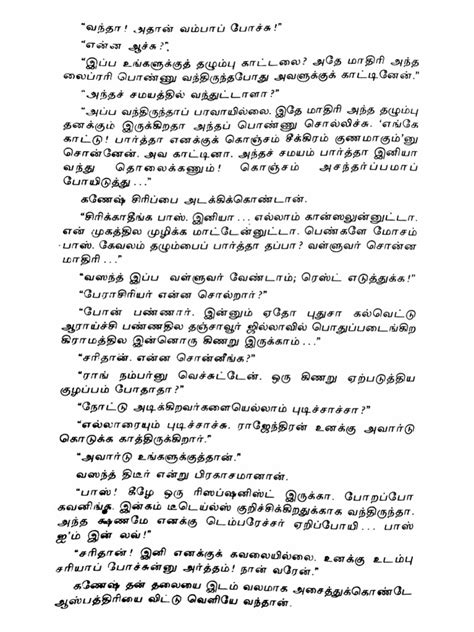 "வந்தா! அதான் வம்பாப் போச்சு!"
"என்ன ஆச்சு?"
"இப்ப உங்களுக்குத் தழும்பு காட்டலை? அதே மாதிரி அந்த
லைப்ரரி பொண்ணு வந்திருந்தபோது அவளுக்குக் காட்டினேன்."
"அந்தச் சமயத்தில் வந்துட்டாளா?"
"அப்ப வந்திருந்தாப் பரவாயில்லை. இதே மாதிரி அந்த தழும்பு
தனக்கும் இருக்கிறதா அந்தப் பொண்ணு சொல்லிச்சு. 'எங்கே
காட்டு! பார்த்தா எனக்குக் கொஞ்சம் சீக்கிரம் குணமாகும்'னு
சொன்னேன். அவ காட்டினா. அந்தச் சமயம் பார்த்தா இனியா
வந்து தொலைக்கணும்! கொஞ்சம் அசந்தர்ப்பமாப்
போயிடுத்து..."
கணேஷ் சிரிப்பை அடக்கிக்கொண்டான்.
"சிரிக்காதீங்க பாஸ். இனியா... எல்லாம் கான்ஸலுன்னுட்டா.
என் முகத்தில முழிக்க மாட்டேன்னுட்டா. பெண்களே மோசம்
பாஸ். கேவலம் தழும்பைப் பார்த்தா தப்பா? வள்ளுவர் சொன்ன
மாதிரி..."
"வஸந்த் இப்ப வள்ளுவர் வேண்டாம்; ரெஸ்ட் எடுத்துக்க!"
"பேராசிரியர் என்ன சொல்றார்?"
"போன் பண்ணார். இன்னும் ஏதோ புதுசா கல்வெட்டு
ஆராய்ச்சி பண்ணதில தஞ்சாவூர் ஜில்லாவில் பொதுப்படைங்கிற
கிராமத்தில இன்னொரு கிணறு இருக்காம்..."
"சரிதான். என்ன சொன்னீங்க?"
"ராங் நம்பர்னு வெச்சுட்டேன். ஒரு கிணறு ஏற்படுத்திய
குழப்பம் போதாதா?"
"நோட்டு அடிக்கிறவர்களையெல்லாம் புடிச்சாச்சா?"
"எல்லாரையும் புடிச்சாச்சு. ராஜேந்திரன் உனக்கு அவார்டு
கொடுக்க காத்திருக்கிறார்."
"அவார்டு உங்களுக்குத்தான்."
வஸந்த் திடீர் என்று பிரகாசமானான்.
"பாஸ்! கீழே ஒரு ரிஸப்ஷனிஸ்ட் இருக்கா. போறப்போ
கவனிங்க. இன்கம் டீடெய்ல்ஸ் குறிச்சிக்கிறதுக்காக வந்திருந்தா.
அந்த க்ஷணமே எனக்கு டெம்பரேச்சர் ஏறிப்போயி... பாஸ்
ஐ'ம் இன் லவ்!"
"சரிதான்! இனி எனக்குக் கவலையில்லை. உனக்கு உடம்பு
சரியாப் போச்சுன்னு அர்த்தம்! நான் வரேன்."
கணேஷ் தன் தலையை இடம் வலமாக அசைத்துக்கொண்டே
ஆஸ்பத்திரியை விட்டு வெளியே வந்தான்.